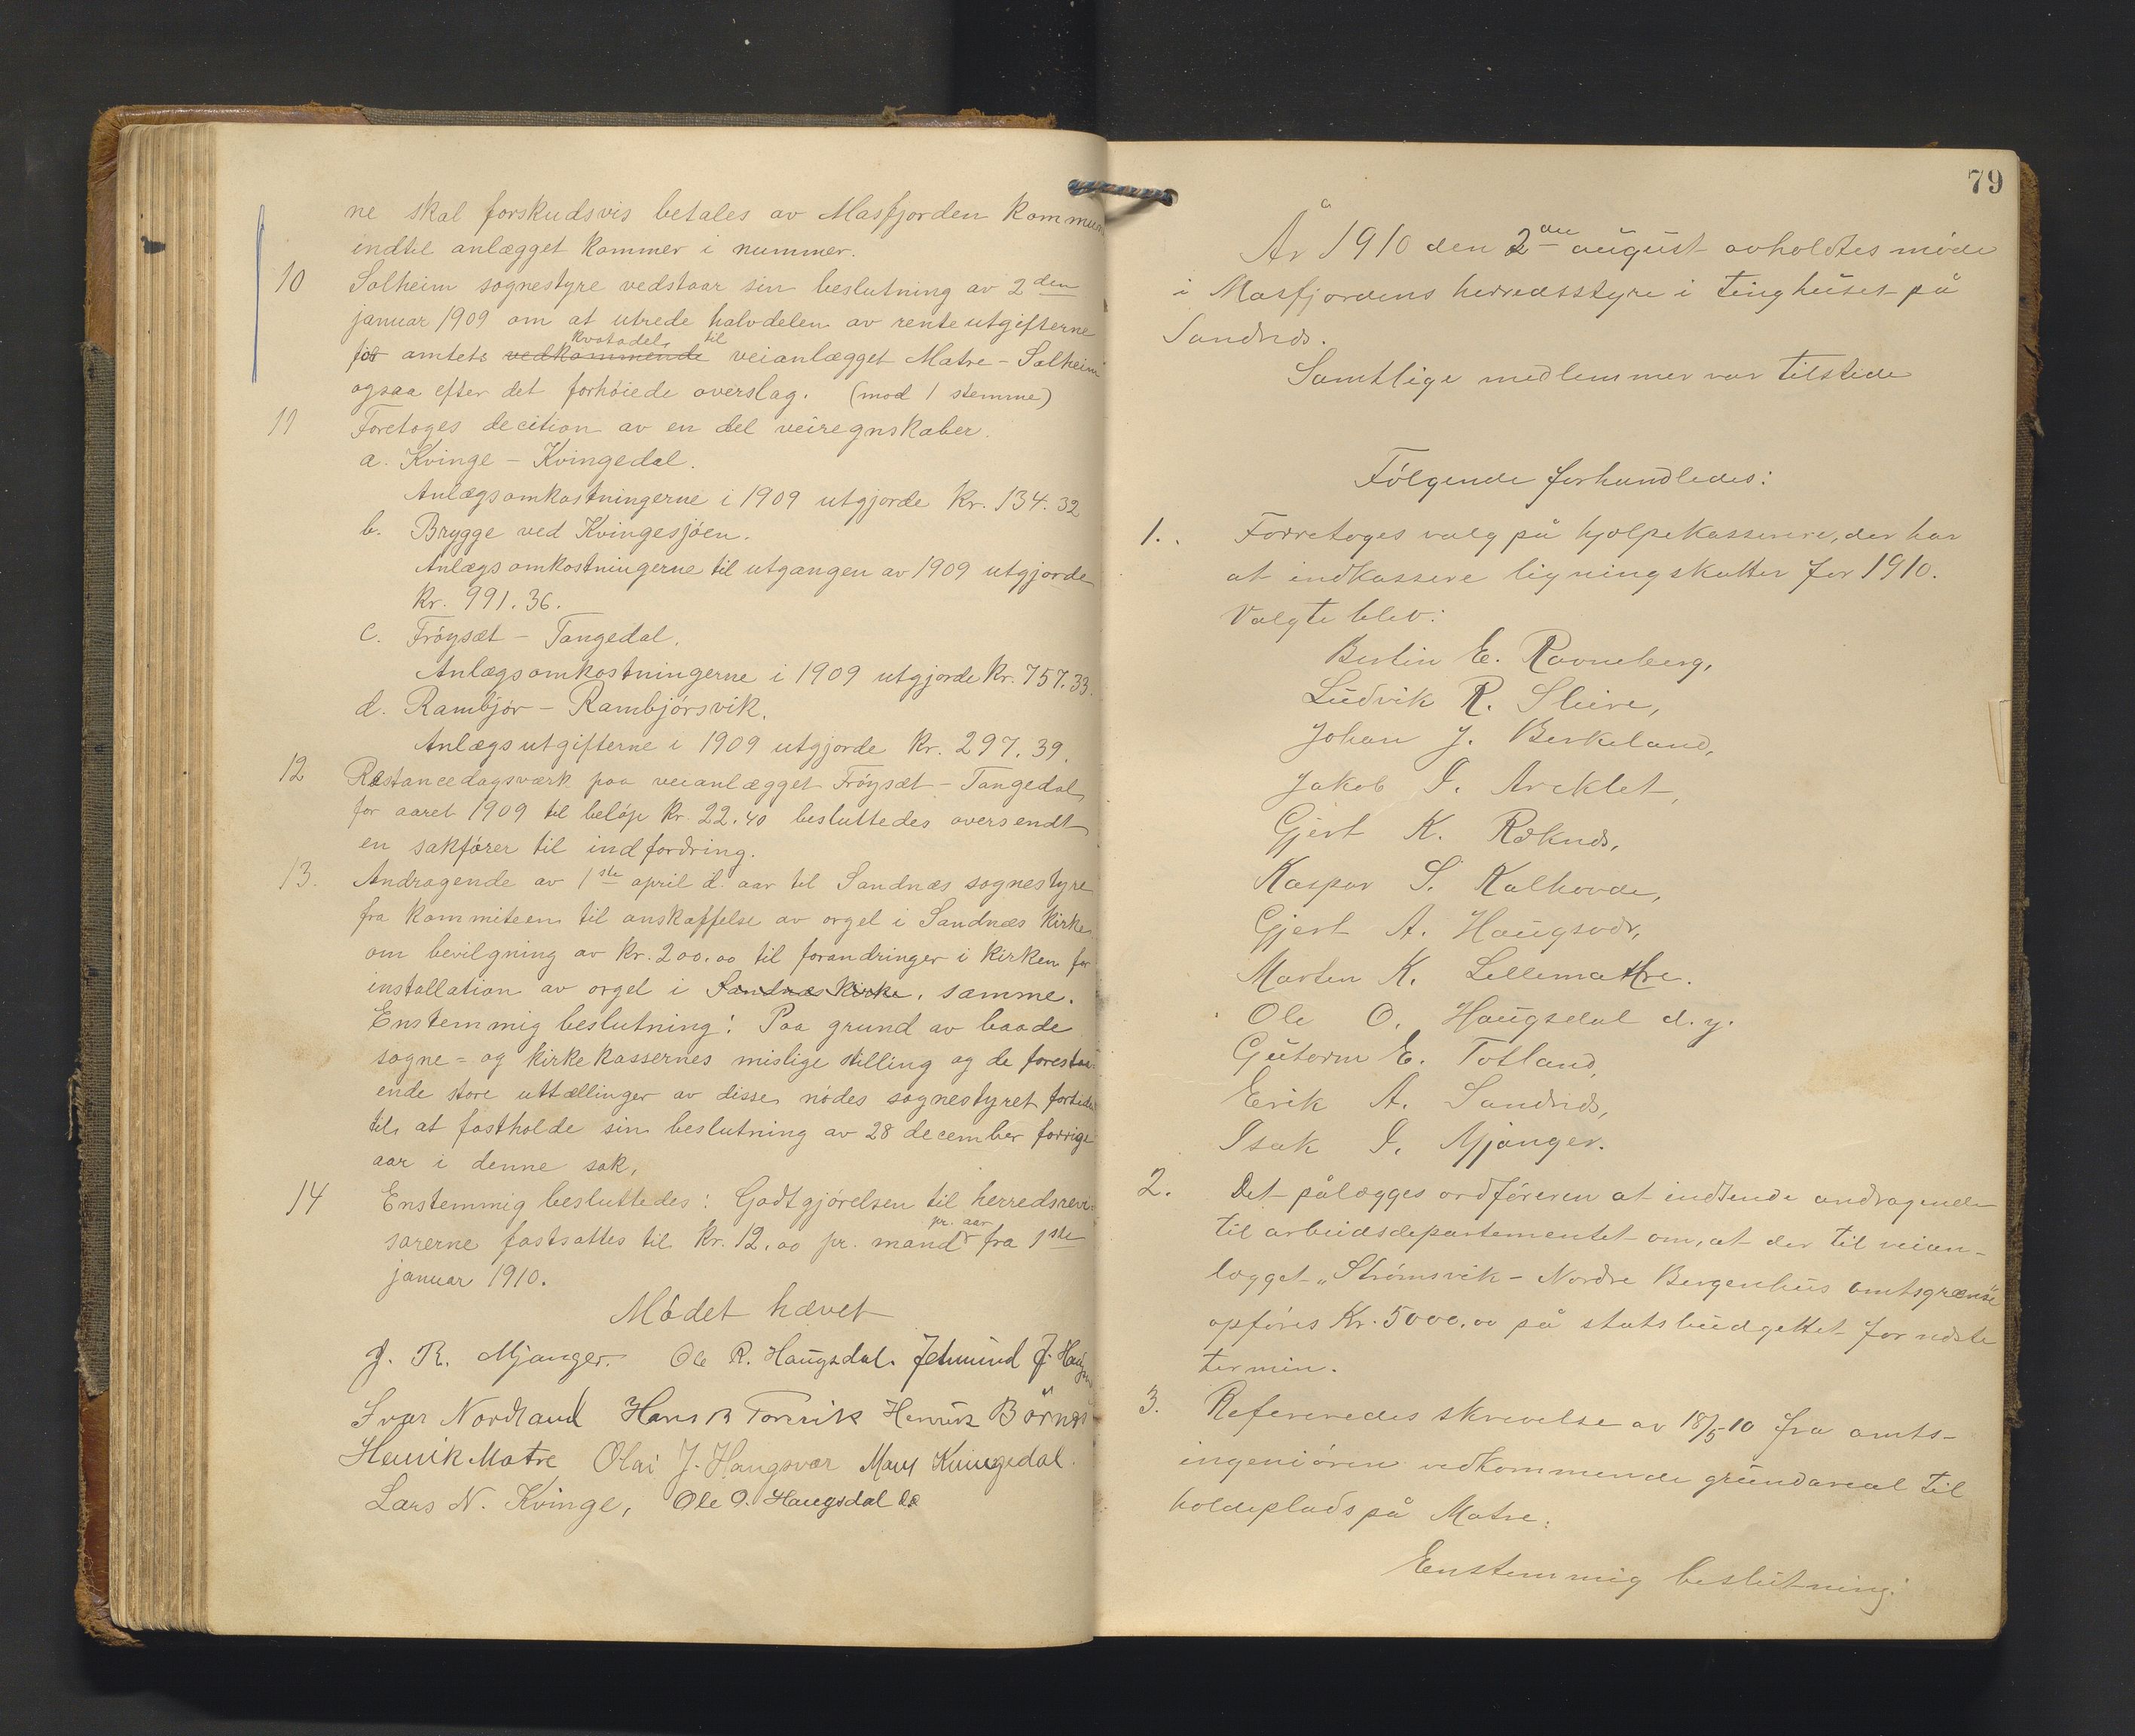 ne skal forskudsvis betales av Masfjorden kommune
indtil anlægget kommer i nummer.
10 Solheim sognestyre vedstaar sin beslutning av 2den
januar 1909 om at utrede halvdelen av renteutgifterne
for amtets vedkommende kvotadel til veianlægget Matre - Solheim
ogsaa efter det forhöiede overslag. (mod 1 stemme)
11 Foretoges decition av en del veiregnskaber.
a. Kvinge - Kvingedal.
Anlægsomkostningerne i 1909 utgjorde kr. 134.32
b. Brygge ved Kvingesjöen.
Anlægsomkostningerne til utgangen av 1909 utgjorde
kr. 991.36.
c. Fröysæt - Tangedal.
Anlægsomkostningerne i 1909 utgjorde kr. 757.33.
d. Rambjör - Rambjörsvik.
Anlægsutgifterne i 1909 utgjorde kr. 297.39.
12 Restancedagsværk paa veianlægget Fröysæt - Tangedal
for aaret 1909 til belöp kr. 22.40 besluttedes oversendt
en sakförer til indfordring.
13. Andragende av 1ste april d. aar til Sandnæs sognestyre
fra kommiteen til anskaffelse av orgel i Sandnæs kirke
om bevilgning av kr. 200.00 til forandringer i kirken for
installation av orgel i Sandnæs kirke. samme.
Enstemmig beslutning: Paa grund av baade
sogne= og kirkekassernes mislige stilling og de foresta-
ende store uttællinger av disse nödes sognestyret fortede
til at fastholde sin beslutning av 28 december forrige
aar i denne sak.
14 Enstemmig besluttedes: Godtgjörelsen til herredsrevi-
sorerne fastsattes til kr. 12.00 pr. mand pr. aar fra 1ste
januar 1910.
Mödet hævet
J. R. Mjanger. Ole R. Haugsdal. Jetmund J. Haug
Ivar Nordland Hans R Torsvik Henrik Börnes
Henrik Matre Olai J. Haugsvær Mons Kvingedal.
Lars N. Kvinge, Ole O. Haugsdal
79
År 1910 den 2den august avholdtes möde
i Masfjordens herredsstyre i tinghuset på
Sandnæs.
Samtlige medlemmer var tilstede
Fölgende forhandledes:
1. Forretoges valg på hjælpekasserere, der har
at indkassere ligningskatter for 1910.
Valgte blev:
Bertin E. Ravneberg,
Ludvik R. Sleire,
Johan J. Berkeland,
Jakob I. Areklet,
Gjert K. Røknes,
Kaspar S. Kalhovde,
Gjert A. Haugsvær,
Marten K. Lellematre.
Ole O. Haugsdal d.y.
Guttorm E. Totland,
Erik A. Sandnæs,
Isak I. Mjanger.
2. Det pålægges ordföreren at indsende andragende
til arbeidsdepartementet om, at der til veian-
lægget „Strömsvik - Nordre Bergenhus amtsgrænse"
opföres Kr. 5000.00 på statsbudgettet for næste
termin.
3. Refereredes skrivelse av 18/5 10 fra amts-
ingeniören vedkommende grundareal til
holdeplads på Matre.
Enstemmig beslutning: